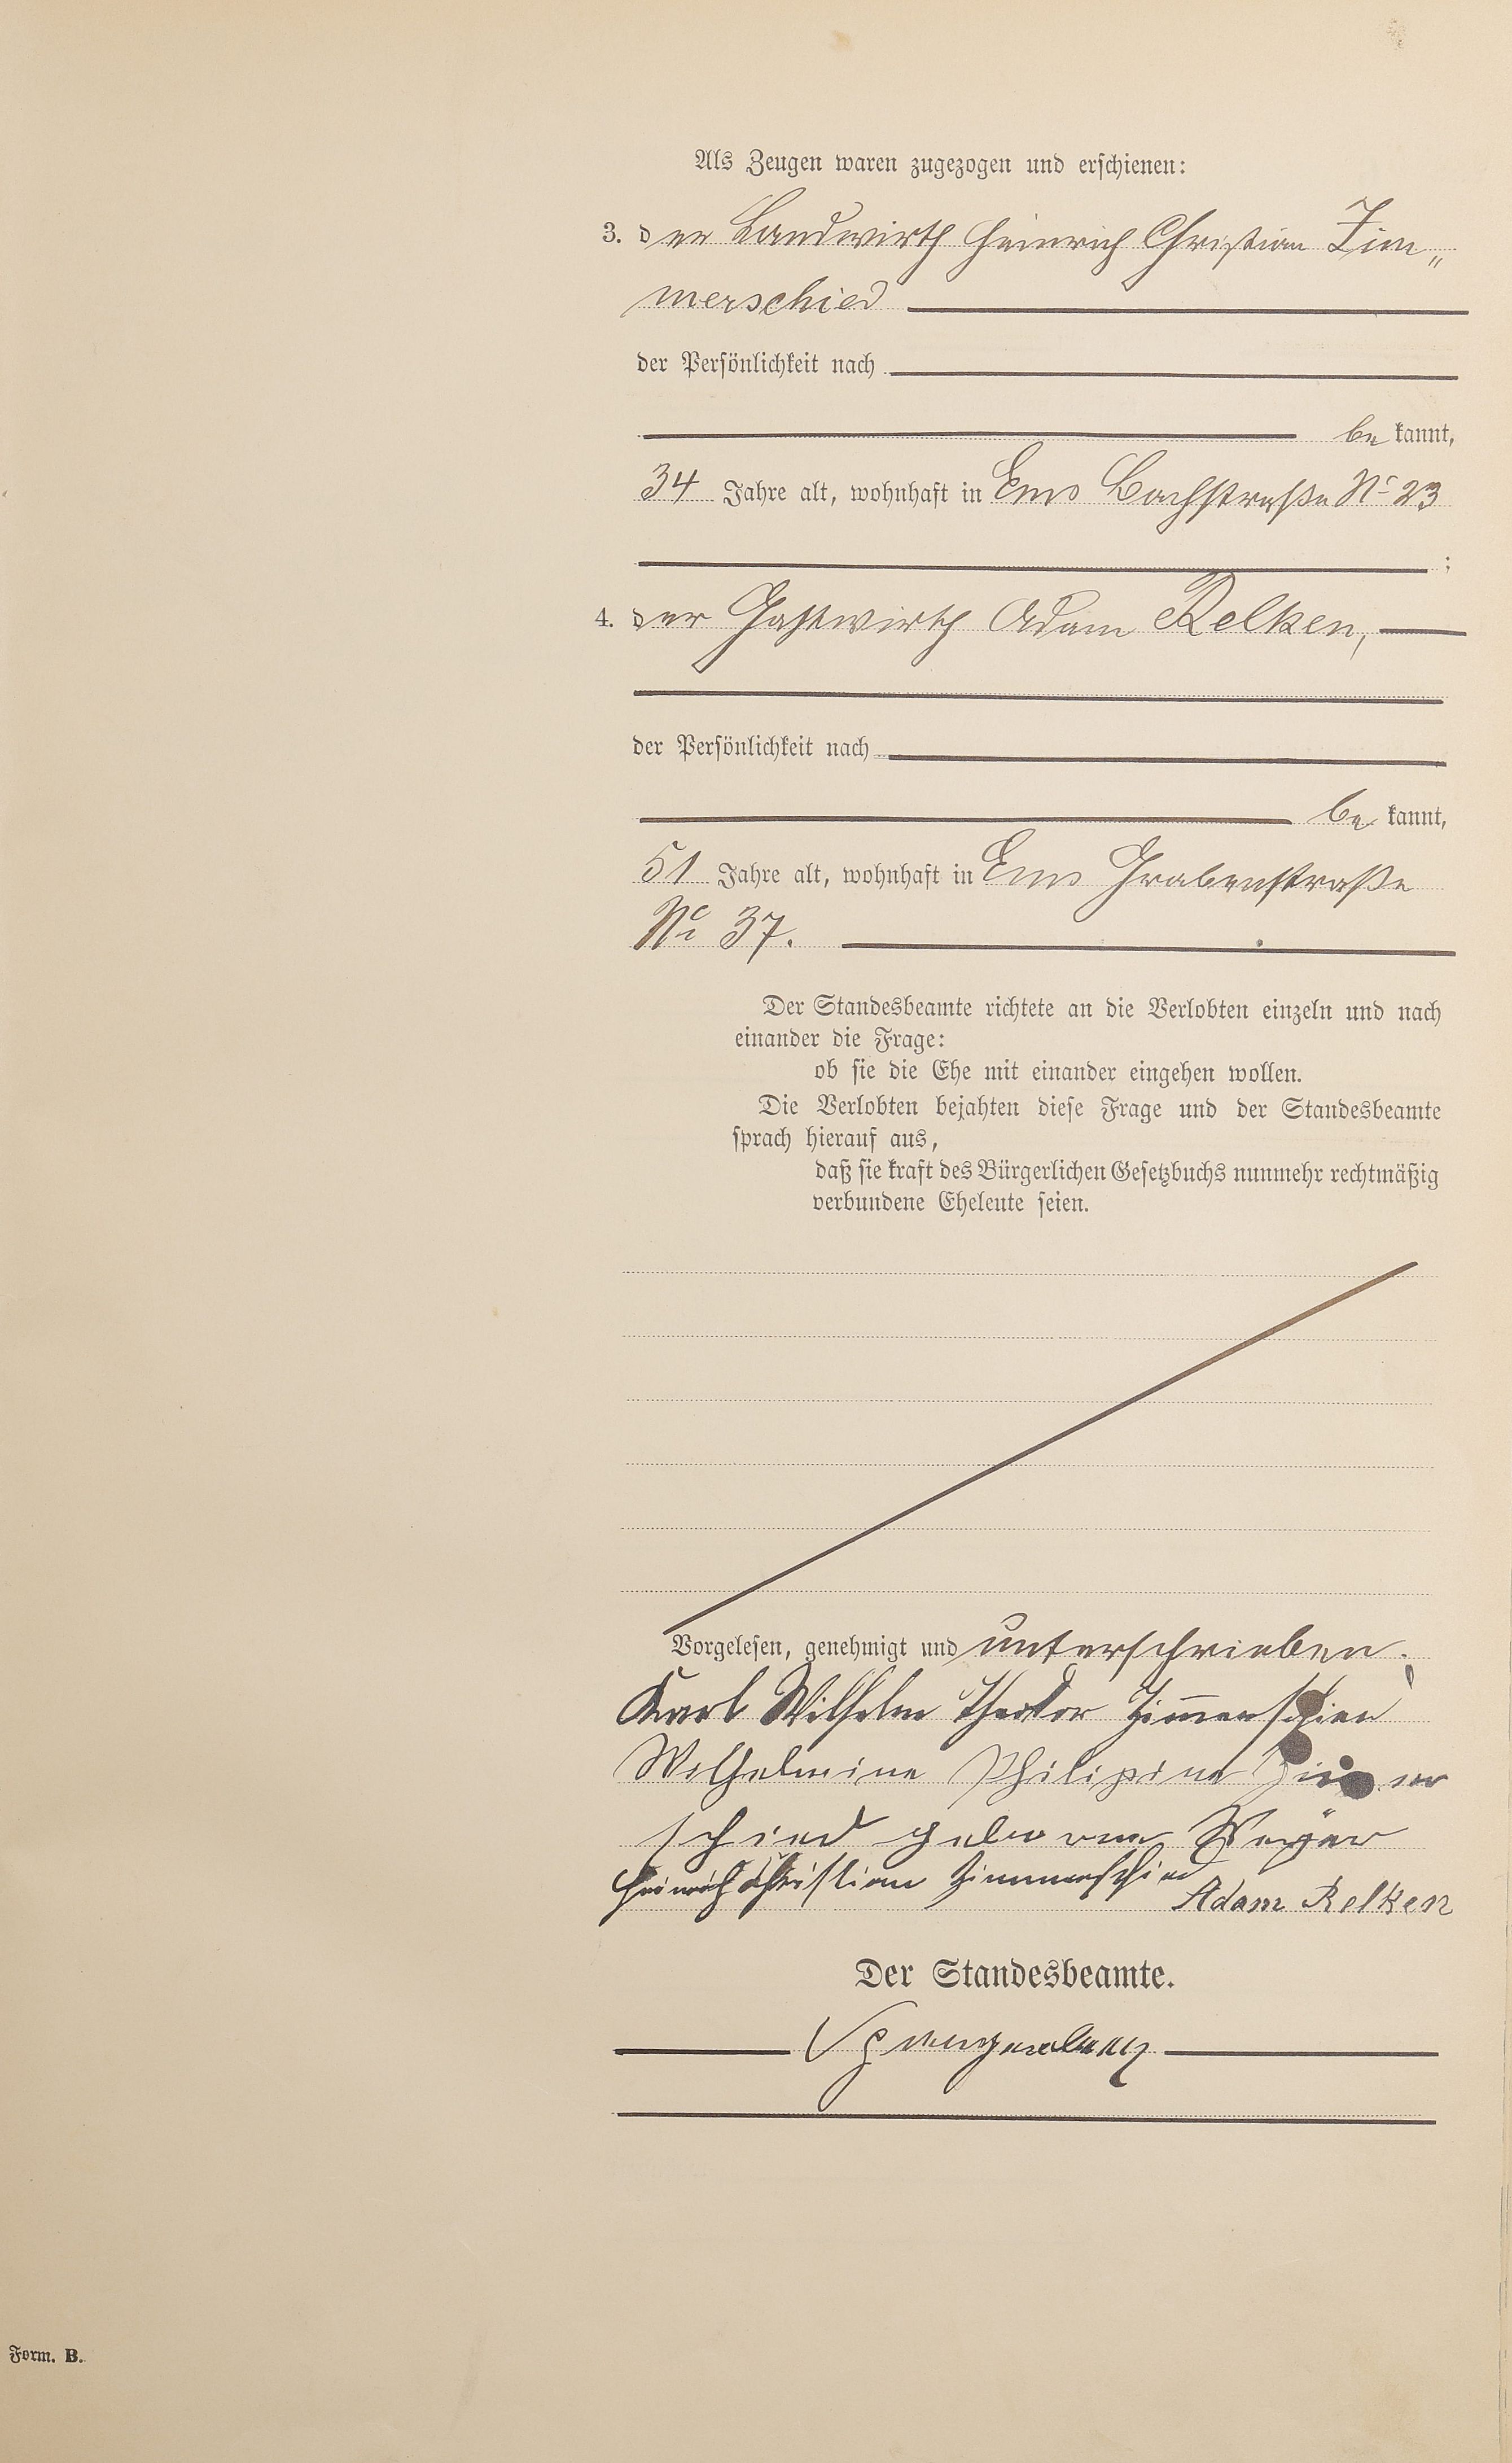 Als Zeugen waren zugezogen und erschienen:
3. der Landwirth Heinrich Christian Zim„
merschied
der Persönlichkeit nach
be kannt,
34 Jahre alt, wohnhaft in Ems Bachstraße No 23
;
4. der Gastwirth Adam Relken,
der Persönlichkeit nach
be kannt,
51 Jahre alt, wohnhaft in Ems Grabenstraße
No 37.
Der Standesbeamte richtete an die Verlobten einzeln und nach
einander die Frage:
ob sie die Ehe mit einander eingehen wollen.
Die Verlobten bejahten diese Frage und der Standesbeamte
sprach hierauf aus,
daß sie kraft des Bürgerlichen Gesetzbuchs nunmehr rechtmäßig
verbundene Eheleute seien.
Vorgelesen, genehmigt und unterschrieben.
Karl Wilhelm Theodor Zimmerschied
Wilhelmine Philipine Zimmer
schied geborene Weyer
Heinrich Christian Zimmerschied
Adam Relken
Der Standesbeamte.
Form. B.